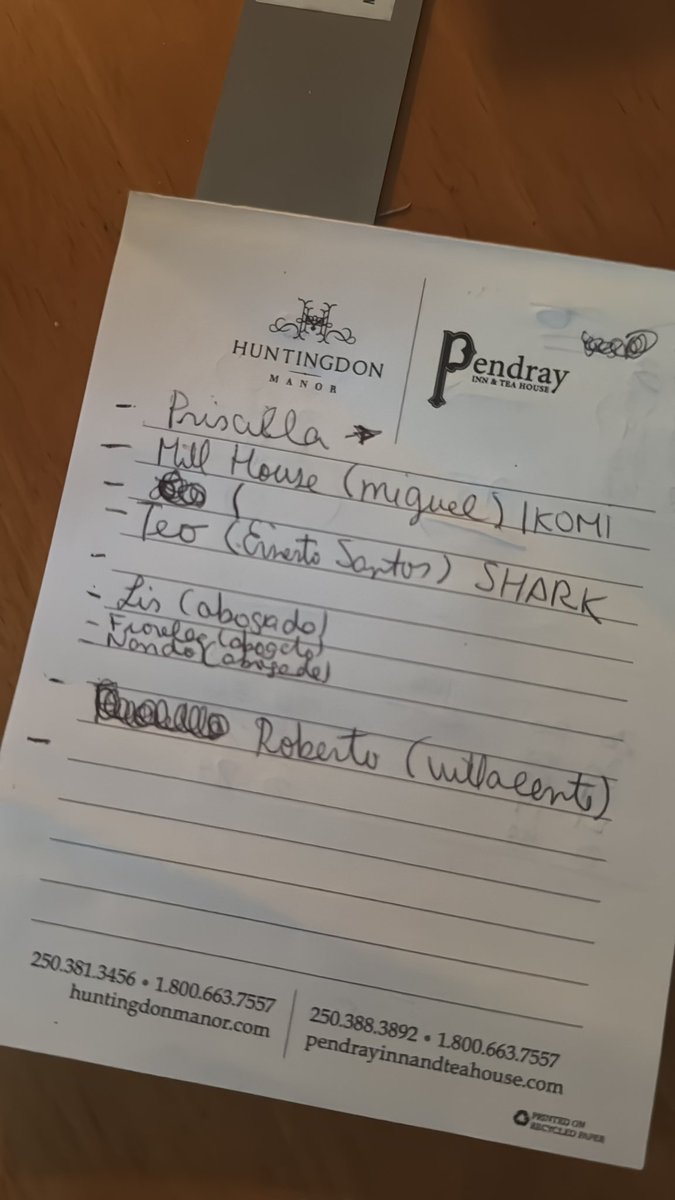 HUNTINGDON
MANOR
Pendray
INN & TEA HOUSE
- Priscilla →
- Mill House (miguel) IKOMI
- (
- Teo (Ernesto Santos) SHARK
-
- Lis (abogado)
- (abogado)
- Nando (abogade)
- Roberto
-
250.381.3456 • 1.800.663.7557
huntingdonmanor.com
250.388.3892 • 1.800.663.7557
pendrayinnandteahouse.com
PRINTED ON
RECYCLED PAPER